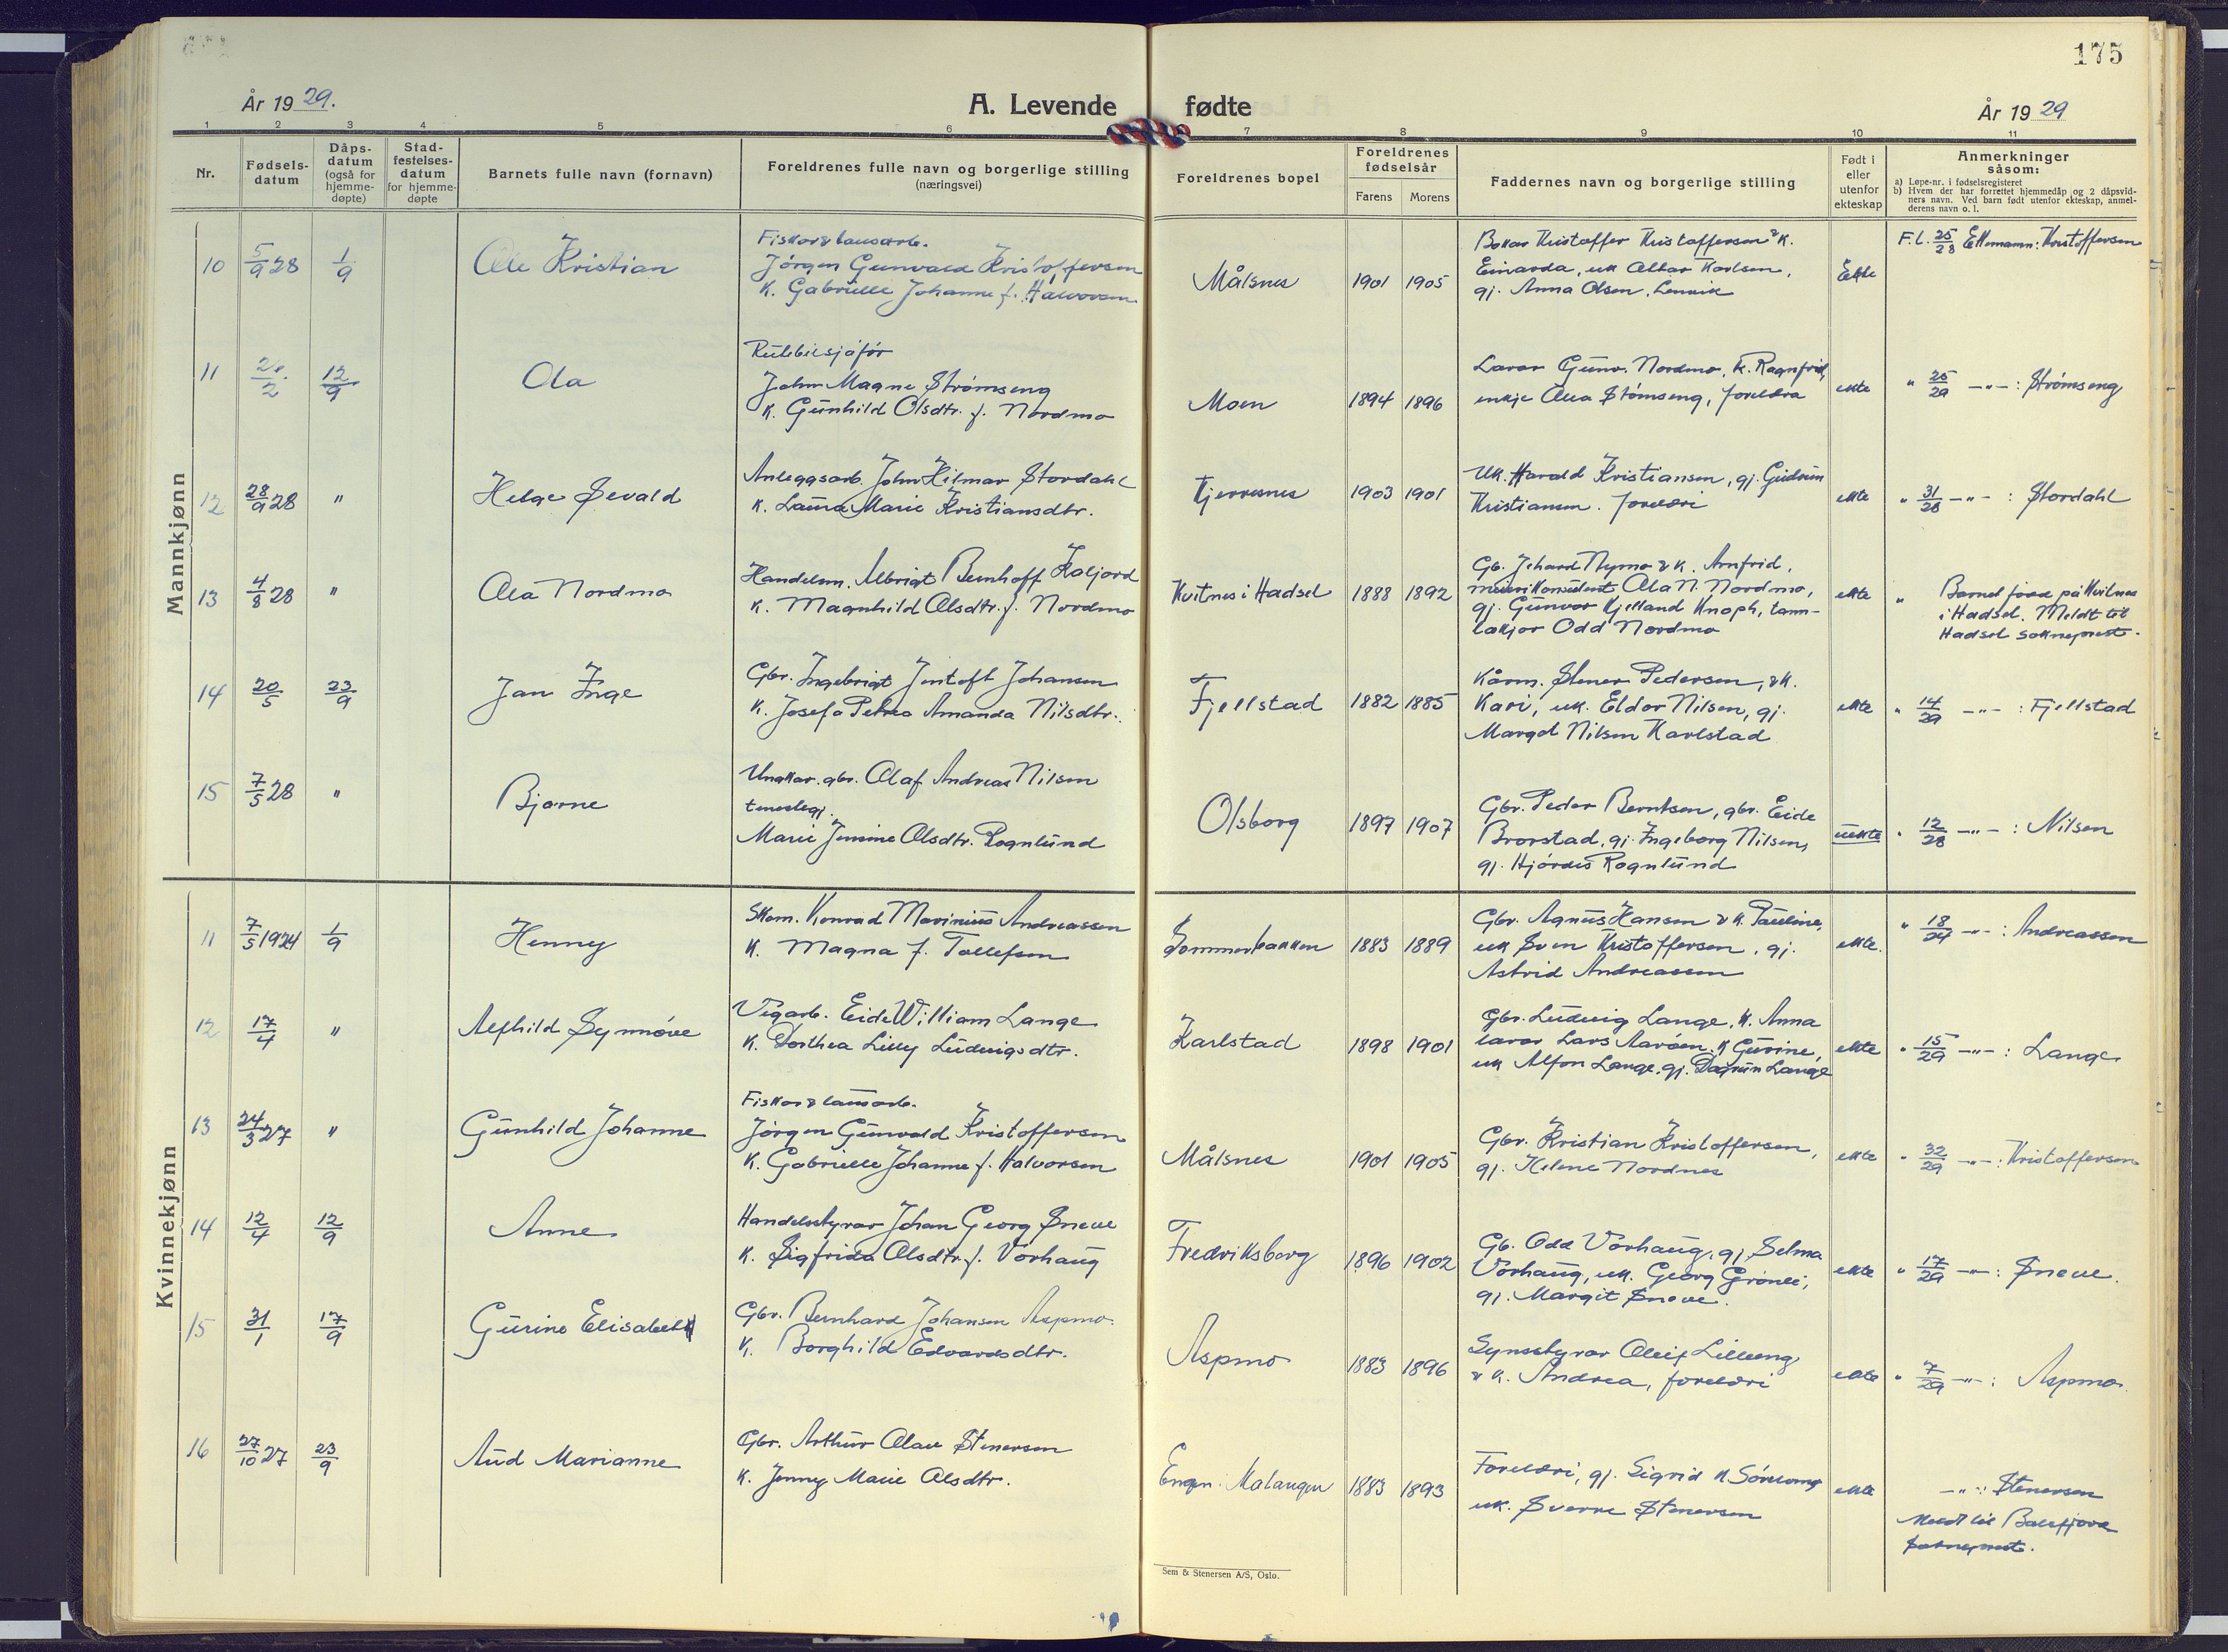 175
År 1929.
A. Levende fødte
År 1929
1 2 3 4 5 6 7 8 9 10 11
Nr.
Fødsels-
datum
Dåps-
datum
(også for
hjemme-
døpte)
Stad-
festelses-
datum
for hjemme-
døpte
Barnets fulle navn (fornavn)
Foreldrenes fulle navn og borgerlige stilling
(næringsvei)
Foreldrenes bopel
Foreldrenes
fødselsår
Farens Morens
Faddernes navn og borgerlige stilling
Født i
eller
utenfor
ekteskap
Anmerkninger
såsom:
a) Løpe-nr. i fødselsregisteret
b) Hvem der har forrettet hjemmedåp og 2 dåpsvid-
ners navn. Ved barn født utenfor ekteskap, anmel-
derens navn o. l.
Mannkjønn
10 5/9 28 1/9 Ole Kristian
Fiskar & lausarb.
Jörgen Gunvald Kristoffersen
K. Gabrielle Johanne f. Halvorsen
Målsnes 1901 1905
Kristoffer Kristoffersen & K.
Einarda, uk Karlsen,
gj. Anna Olsen, Lenvik
Ekte
F.l. 25/28 Kristoffersen
11 2/2 12/9 Ola
Rutebilsjåför
John Magne Strömseng
K. Gunhild Olsdtr. f. Nordmo
Moen 1894 1896
Gunv. Nordmo, K. Ragnfrid,
enkje Strömseng, foreldra
ekte
" 25/29 -"- : Strömseng
12 28/9 28 " Helge Sevald
Anleggsarb. John Hilmar Stordahl
K. Laura Marie Kristiansdtr.
Kjerresnes 1903 1901
Uk. Harald Kristiansen, gj. Gudrun
Kristiansen. foreldri
ekte
" 31/28 -"- : Stordahl
13 4/8 28 " Ola Nordmo
Handelsm. Albrigt Bernhoff Kaljord
K. Magnhild Olsdtr. f. Nordmo
Kvitnes i Hadsel 1888 1892
Gb. Nymo & K. Arnfrid,
meierikonsulent Ola N. Nordmo,
gj. Gunvor Kjelland Knoph, tann-
lækjar Odd Nordmo
ekte
" Barnet född på Kvitnes
i Hadsel. Meldt til
Hadsel sokneprest.
14 20/5 23/9 Jan Inge
Gbr. Ingebrigt Jentoft Johansen
K. Josefa Petrea Amanda Nilsdtr.
Fjellstad 1882 1885
Stener Pedersen, & K.
Kari, uk. Eldor Nilsen, gj.
Margot Nilsen Karlstad
ekte
" 14/29 -"- : Fjellstad
15 7/5 28 " Bjarne
Ungkar. gbr. Olaf Andreas Nilsen
tenestegj.
Marie Jensine Olsdtr. Rognlund
Olsborg 1897 1907
Gbr. Peder Berntsen, gbr. Eide
Brorstad, gj. Ingeborg Nilsen,
gj. Hjördis Rognlund
uekte
" 12/28 -"- : Nilsen
Kvinnekjønn
11 7/5 1924 1/9 Henny
Skom. Konrad Marinius Andreassen
K. Magna f. Tollefsen
Sommerbakken 1883 1889
Gbr. Agnus Hansen & K. Pauline,
uk Sven Kristoffersen, gj.
Astrid Andreassen
ekte.
" 18/24 -"- : Andreassen
12 17/4 " Alfhild Synnöve
Vegarb. Eide William Lange
K. Dorthea Lilly Ludvigsdtr.
Karlstad 1898 1901
Gbr. Ludvig Lange, K. Anna
Lars Aaröen, K Gurine,
uk Alfon Lange, gj. Dagrun Lange
ekte
" 15/29 -"- : Lange
13 24/3 27 " Gunhild Johanne
Fiskar & lausarb.
Jörgen Gunvald Kristoffersen
K. Gabrielle Johanne f. Halvorsen
Målsnes 1901 1905
Gbr. Kristian Kristoffersen,
gj. Helene Nordnes
ekte
" 32/29 -"- : Kristoffersen
14 12/4 12/9 Anne
Handelsstyrar Johan Georg Sneve
K. Sigfrida Olsdtr. f. Vorhaug
Fredriksberg 1896 1902
Gb. Odd Vorhaug, gj. Selma
Vorhaug, uk. Georg Grönli,
gj. Margit Sneve.
ekte
" 17/29 -"- : Sneve.
15 31/1 17/9 Gurine Elisabeth
Gbr. Bernhard Johansen Aspmo.
K. Borghild Edvardsdtr.
Aspmo 1883 1896
Oleif Lilleeng
& K. Andrea, foreldri
ekte
" 7/29 -"- : Aspmo.
16 27/10 27 23/9 Aud Marianne
Gbr. Arthur Olav Stenersen
K. Jenny Marie Olsdtr.
Engen i Malangen 1883 1893
Foreldri, gj. Sigrid
uk. Sverre Stenersen
ekte
-"- : Stenersen
Meldt til Balsfjord
sokneprest.
Sem & Stenersen A/S, Oslo.